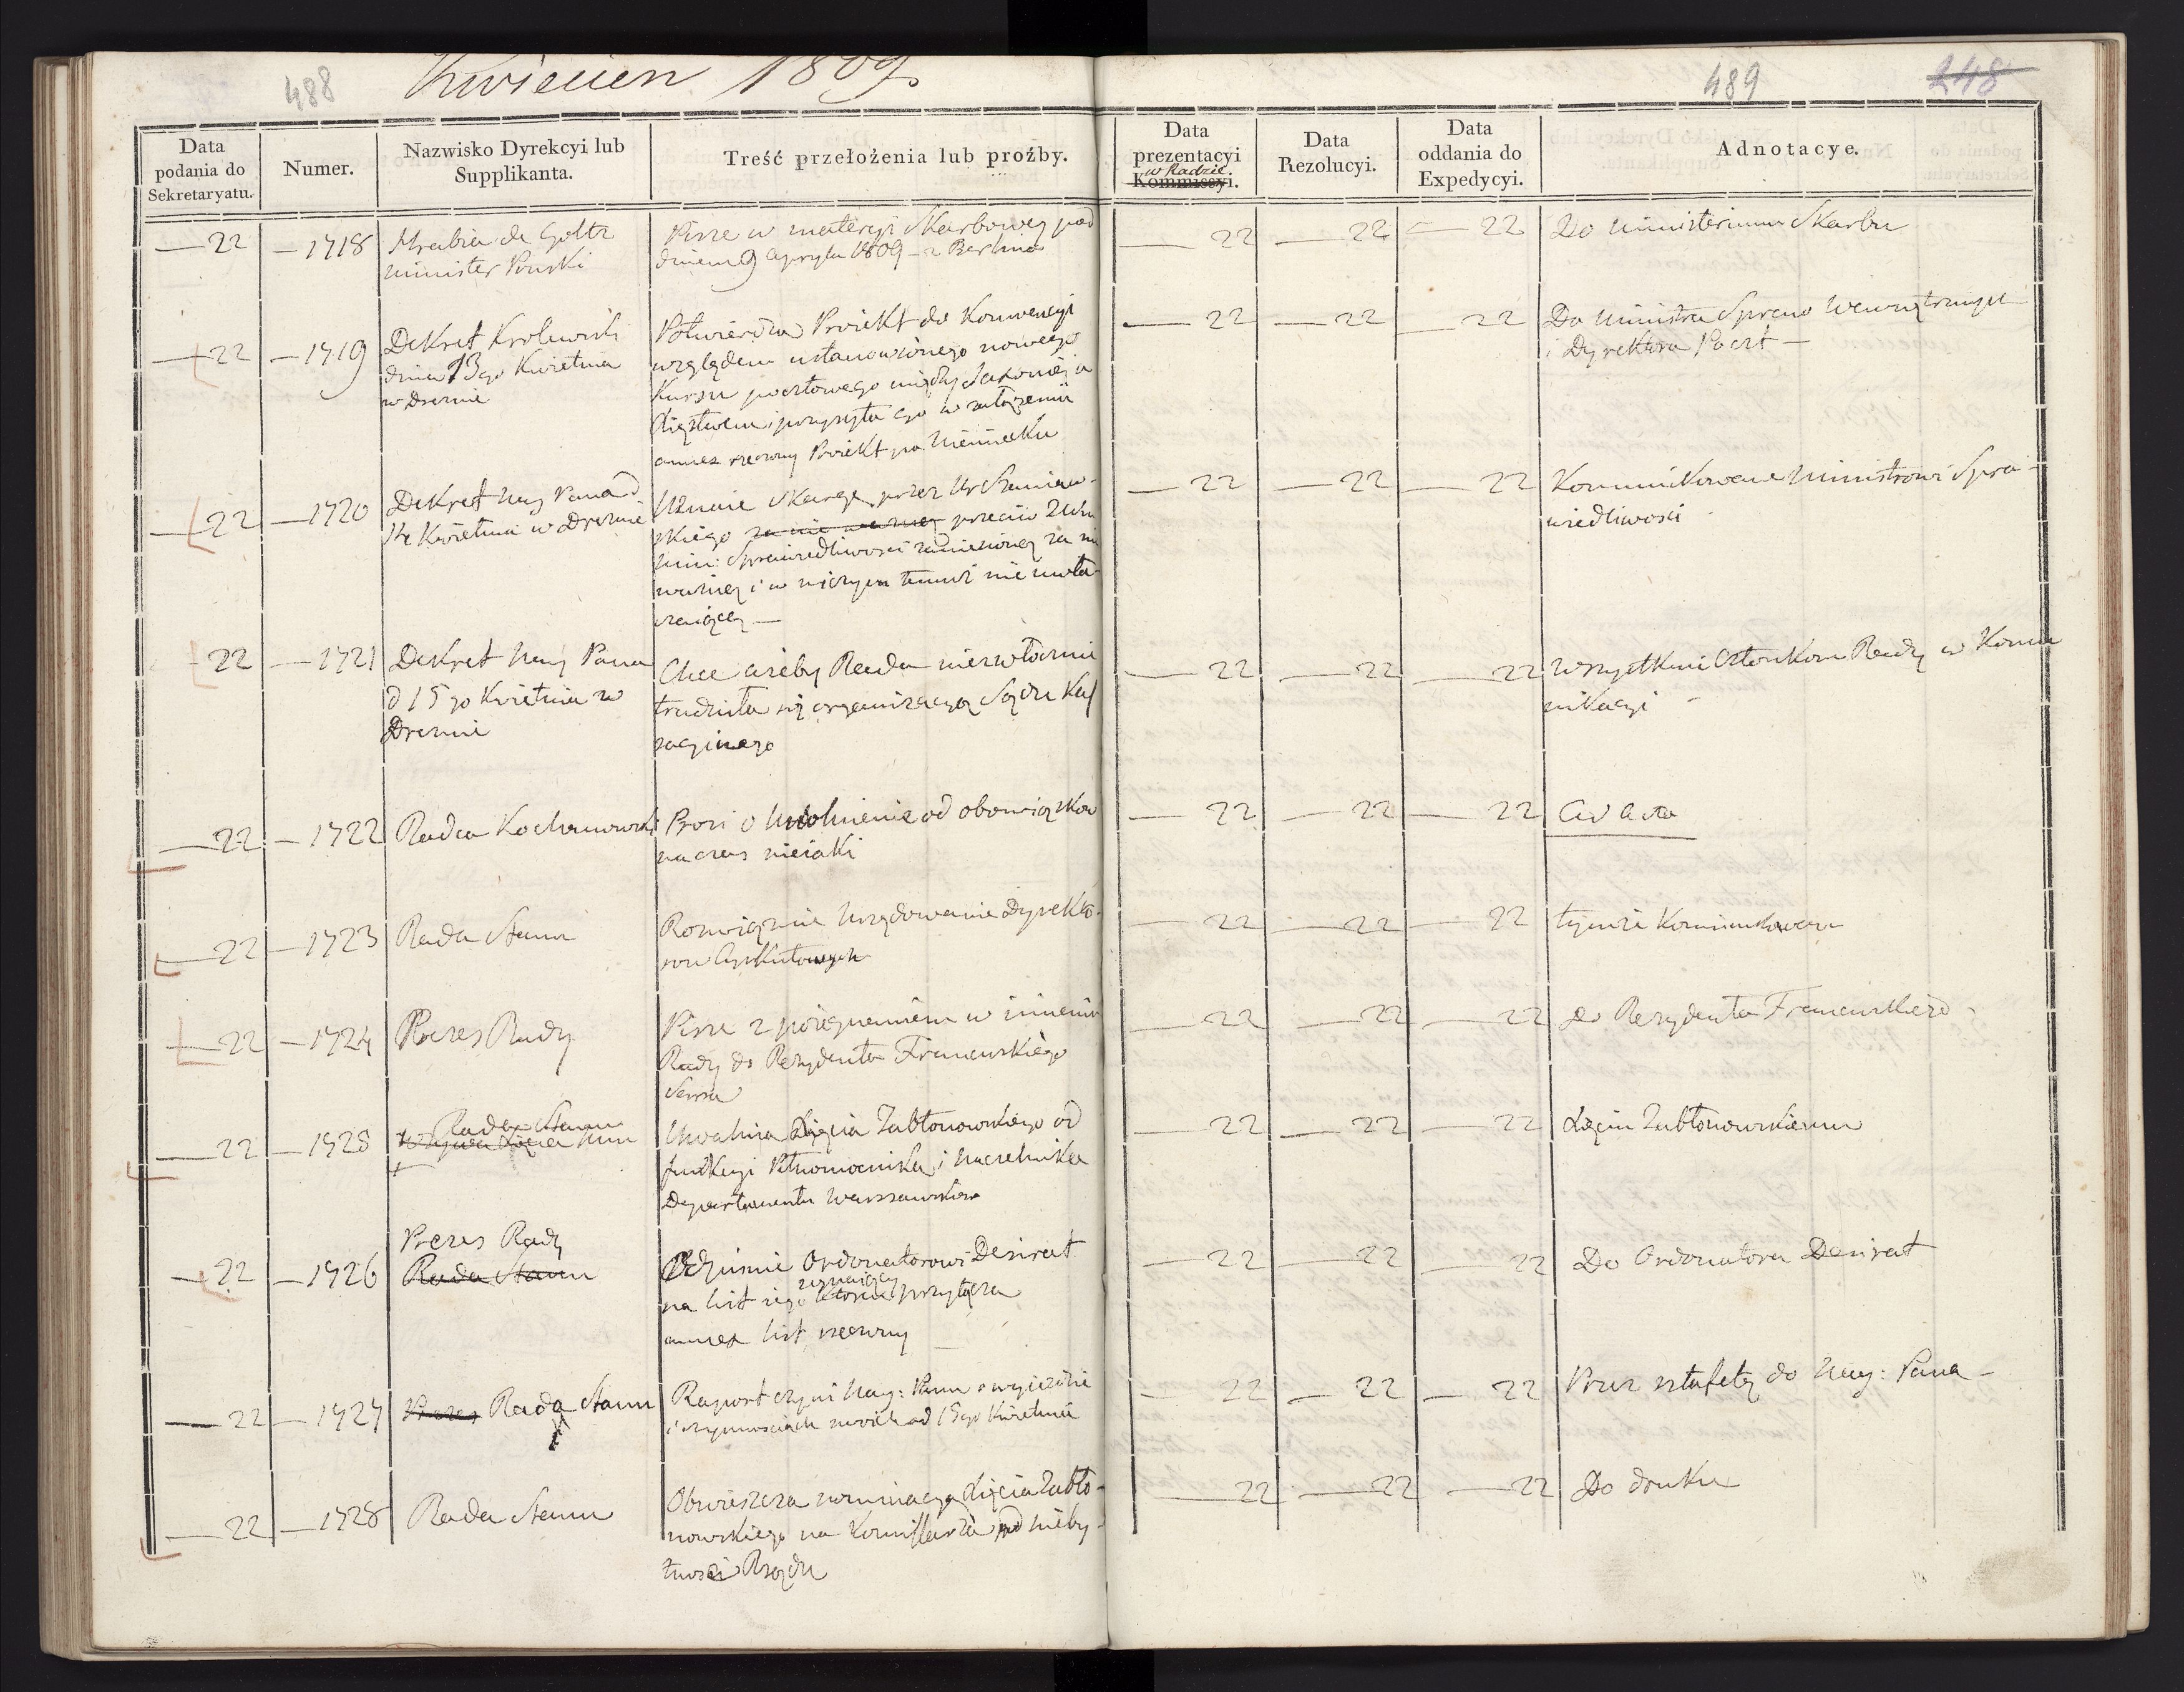 488
Kwiecien 1809.
489
248
Data podania do Sekretaryatu.
Numer.
Nazwisko Dyrekcyi lub Supplikanta.
Treść przełożenia lub proźby.
Data prezentacyi w Radzie Kommissyi.
Data Rezolucyi.
Data oddania do Expedycyi.
Adnotacye.
— 22 — 1718 Hrabia de Goltz Pisze w materyi Skarbowey pod — 22 — 22 — 22 Do Ministerium Skarbu
minister Pruski dniem 9 Apryla 1809 – z Berlina
— 22 — 1719 Dekret Krolewski Potwierdza Proiekt do Konwencyi — 22 — 22 — 22 Do Ministra Spraw Wewnętrznych
dnia 13go Kwietnia względem ustanowionego nowego i Dyrektora Poczt —
w Dreznie Kursu pocztowego między Saxonią a
Xięstwem i przysyła go w załączeniu
annex rzeczony Proiekt po Niemiecku
— 22 — 1720 Dekret Nay Pana d. Uznaie skargę przez Ur — 22 — 22 — 22 Kommunikowane Ministrowi Spra-
14 Kwietnia w Dreznie skiego przeciw wiedliwosci
Min: Sprawiedliwosci zaniesioną za nie
ważną i w niczym temuż nie uwła-
czaiącą —
— 22 — 1721 Dekret Nay Pana Chce ażeby Rada niezwłocznie — 22 — 22 — 22 Wszystkim Członkom Rady w Kommu
d 15go Kwietnia w trudniła się organizacyą Sądu Kas nikacyi –
Dreznie sacyinego
— 22 — 1722 Radca Kochanowski Prosi o Uwolnienie od obowiązkow — 22 — 22 — 22 Ad Acta
na czas nieiaki
— 22 — 1723 Rada Stanu Rozwiązuie Urzędowanie Dyrekto- — 22 — 22 — 22 tymże kommunikowano
row
— 22 — 1724 Prezes Rady Pisze z pożegnaniem w imieniu — 22 — 22 — 22 do Rezydenta Francuskiego
Rady do Rezydenta Francuskiego
Serra
— 22 — 1725 Rada Stanu Uwalnia Xięcia Jabłonowskiego od — 22 — 22 — 22 Xięciu Jabłonowskiemu
funkcyi Pełnomocnika i Naczelnika
Departamentu Warszawskiego
— 22 — 1726 Prezes Rady Odpisuie Ordonatorowi Desirat — 22 — 22 — 22 Do Ordonatora Desirat
Rada Stanu na list iego przyłącza
annex list rzeczony
— 22 — 1727 Prezes Rada Stanu Raport czyni Nay: Panu o wyieździe — 22 — 22 — 22 Przez sztafetę do Nay: Pana –
i czynnosciach swoich od 15go Kwietnia
— 22 — 1728 Rada Stanu Obwieszcza nominacyą Xięcia Jabło- — 22 — 22 — 22 Do druku
nowskiego na Kommissarza pod nieby-
tnosci Rządu